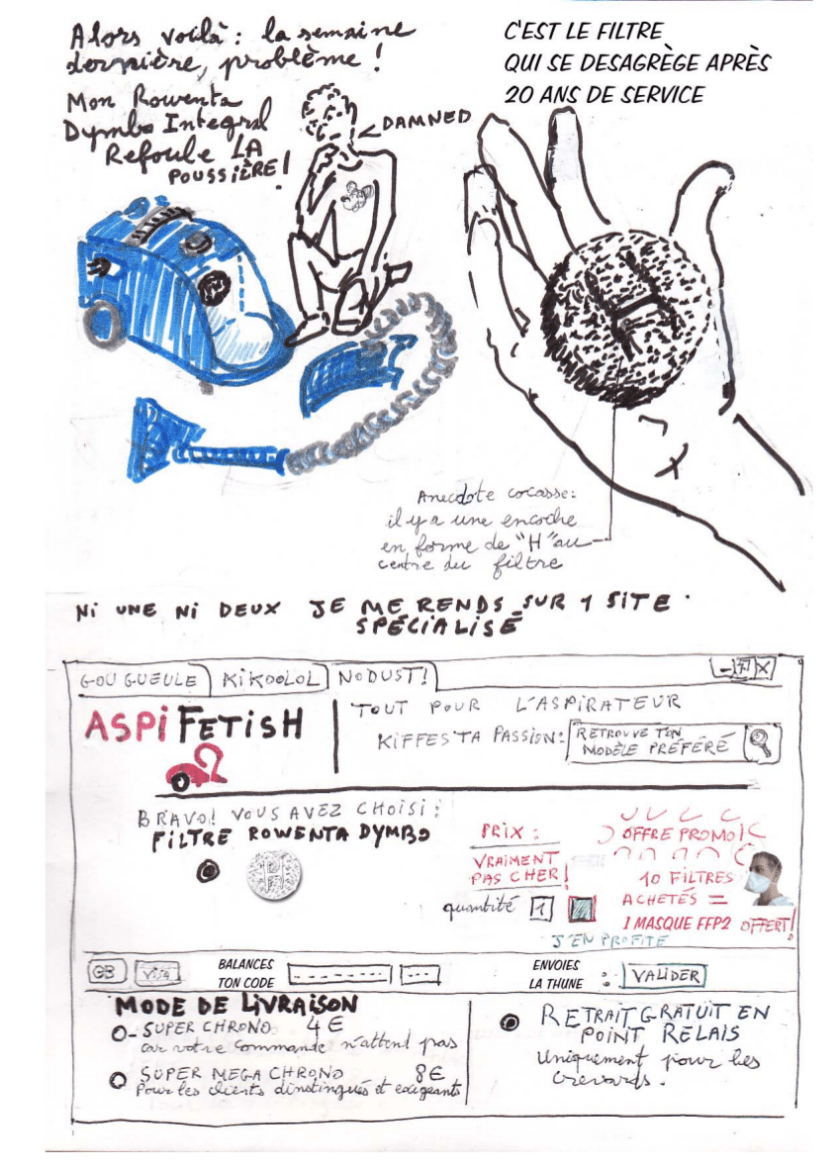 Alors voilà : la semaine
dernière, problème !
Mon Rowenta
Dymbo Integral
Refoule LA
POUSSIÈRE !
DAMNED
C'EST LE FILTRE
QUI SE DESAGRÈGE APRÈS
20 ANS DE SERVICE
Anecdote cocasse :
il y a une encoche
en forme de "H" au
centre du filtre
Ni UNE Ni DEUX JE ME RENDS SUR 1 SITE
SPÉCIALISÉ
GOUGUEULE
KiKOOLOL
NODUST!
ASPiFETISH
TOUT POUR L'ASPIRATEUR
KIFFES TA PASSION :
RETROUVE TON
MODÈLE PRÉFÉRÉ
BRAVO! VOUS AVEZ CHOISI :
FILTRE ROWENTA DYMBO
H
PRIX :
VRAIMENT
PAS CHER !
quantité 1
OFFRE PROMO!
10 FILTRES
ACHETÉS =
1 MASQUE FFP2 OFFERT!
J'EN PROFITE
CB
Visa
BALANCES
TON CODE
ENVOIES
LA THUNE :
VALIDER
MODE DE LIVRAISON
SUPER CHRONO 4€
car votre commande n'attend pas
SUPER MEGA CHRONO 8€
Pour les clients dinstingués et exigeants
RETRAIT GRATUIT EN
POINT RELAIS
Uniquement pour les
crevards.